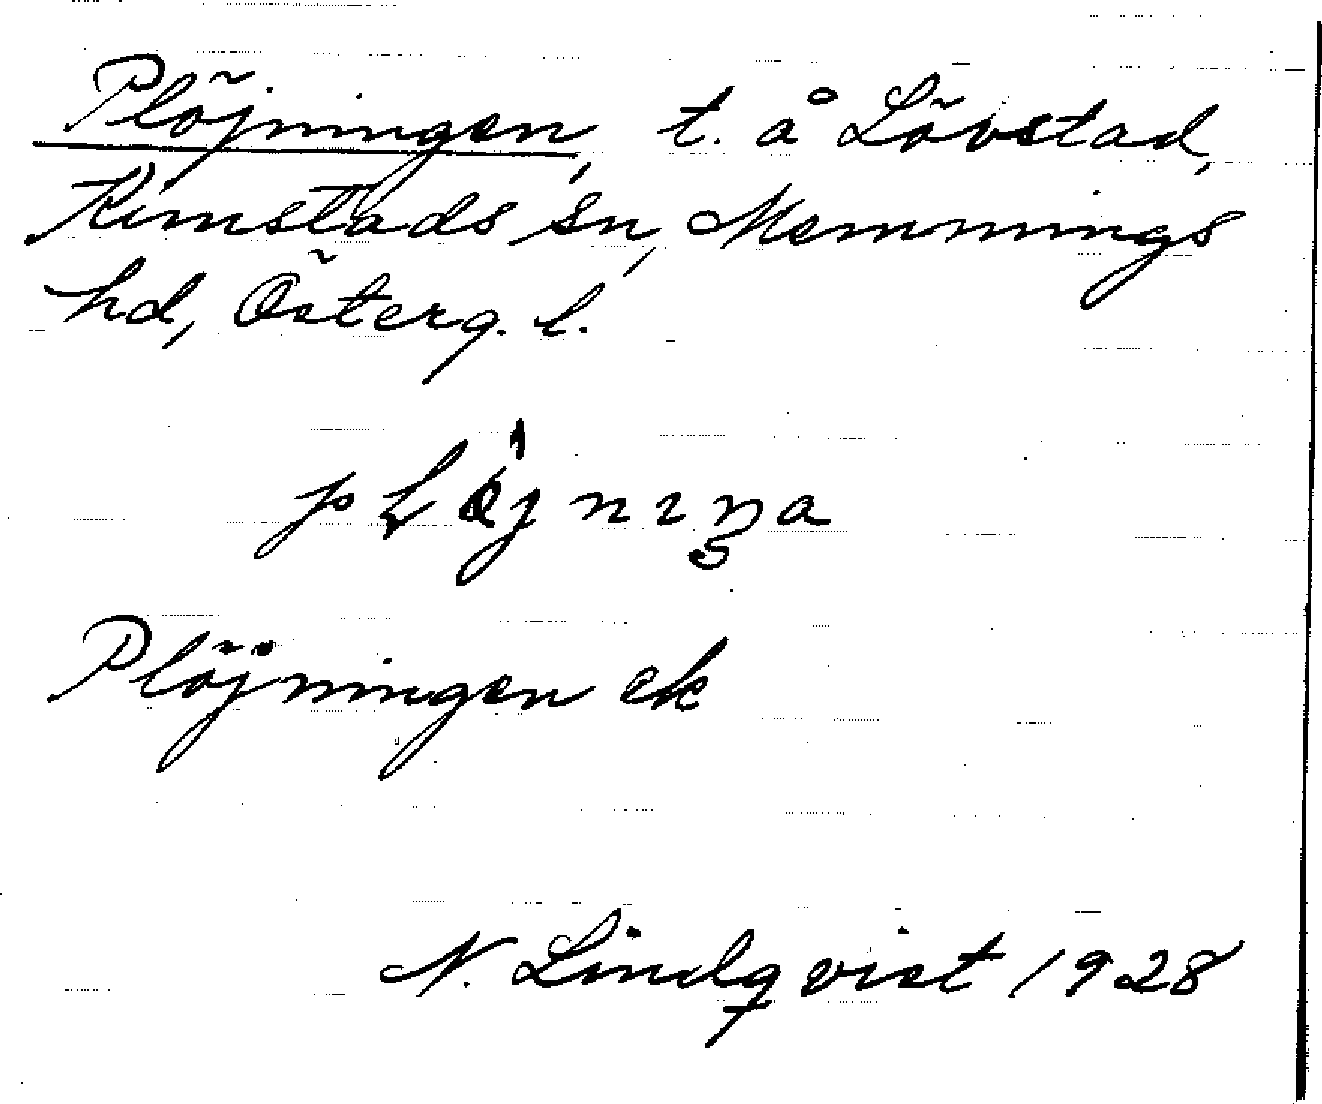 Plöjningen, t. å Lövstad,
Kimstads sn, Memmings
hd, Österg. l.
Plöjningen ek
N. Lindqvist 1928